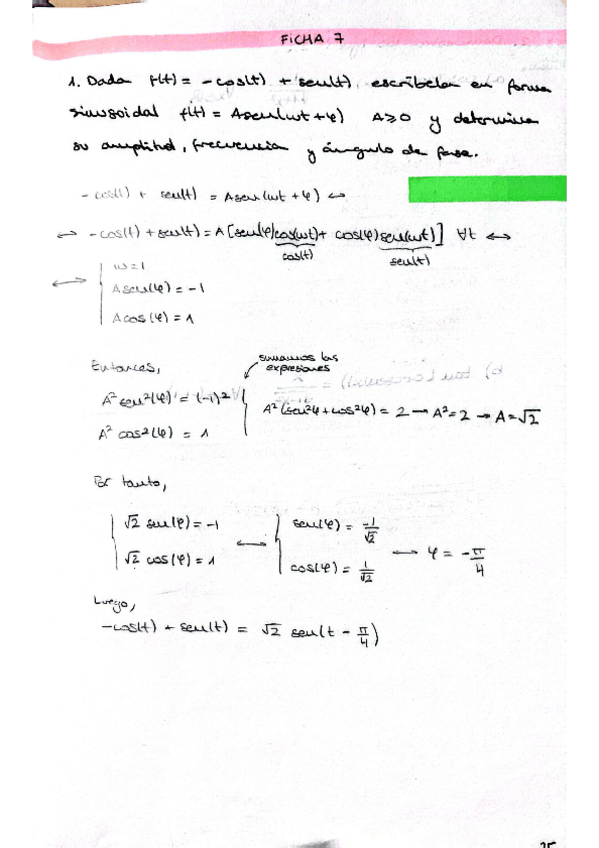 FICHA 7
1. Dada f(t) = -cos(t) + sen(t), escríbela en forma
sinusoidal f(t) = Asen(wt+φ) A≥0 y determina
su amplitud, frecuencia y ángulo de fase.
-cos(t) + sen(t) = Asen(wt+φ) ↔
↔ -cos(t) + sen(t) = A[sen(φ)cos(wt) + cos(φ)sen(wt)] ∀t ↔
cos(t) sen(t)
↔ w=1
Asen(φ) = -1
Acos(φ) = 1
Entonces,
sumamos las
expresiones
A² sen²(φ) = (-1)²
A²(sen²φ + cos²φ) = 2 → A² = 2 → A = √2
A² cos²(φ) = 1
Por tanto,
√2 sen(φ) = -1 ↔ sen(φ) = -1/√2
√2 cos(φ) = 1 cos(φ) = 1/√2 → φ = -π/4
Luego,
-cos(t) + sen(t) = √2 sen(t - π/4)